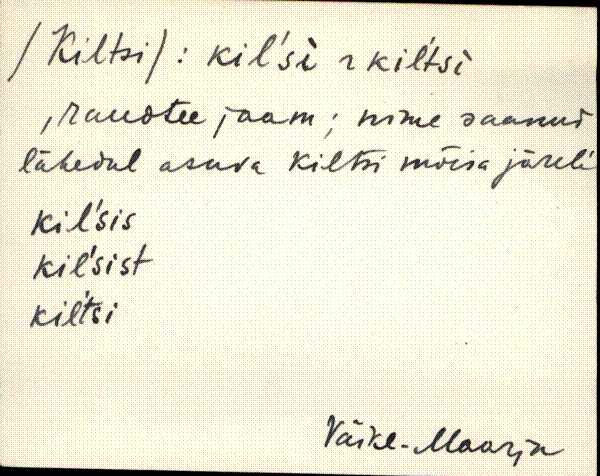 /Kiltsi/: kil'si ~ kil'tsi
, raudteejaam; nime saanud
lähedal asuva Kiltsi mõisa järeli
kil'sis
kil'sist
kil'tsi
Väike-Maarja